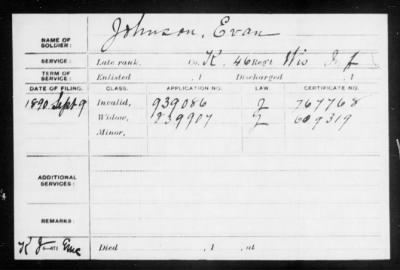 Johnson, Evan
NAME OF SOLDIER:
SERVICE: Late rank, Co. K, 46 Reg't Wis Inf
TERM OF SERVICE: Enlisted , 1 Discharged , 1
DATE OF FILING. CLASS. APPLICATION NO. LAW. CERTIFICATE NO.
1890 Sept 9 Invalid, 939086 J 767768
Widow, 839907 J 609319
Minor,
ADDITIONAL SERVICES:
REMARKS:
Died , 1 , at